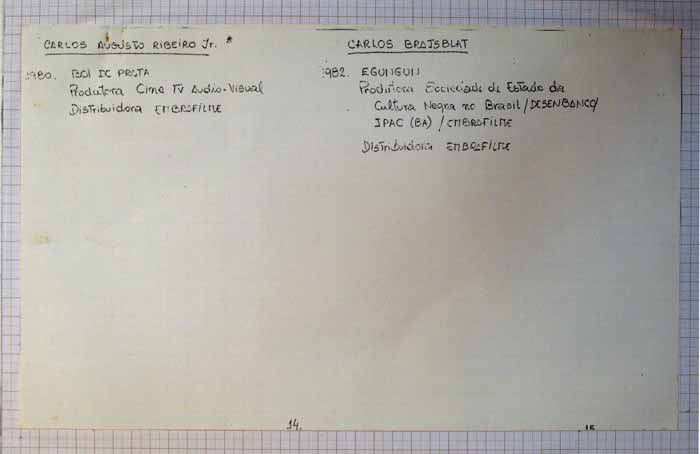 CARLOS AUGUSTO RIBEIRO Jr. *
1980. BOI DE PRATA
Produtora Cine TV Audio-Visual
Distribuidora EMBRAFILME
CARLOS BRAJSBLAT
1982. EGUNGUN
Produtora Sociedade de Estudo da
Cultura Negra no Brasil/DESENBANCO/
IPAC (BA) / EMBRAFILME
Distribuidora EMBRAFILME
14.
15